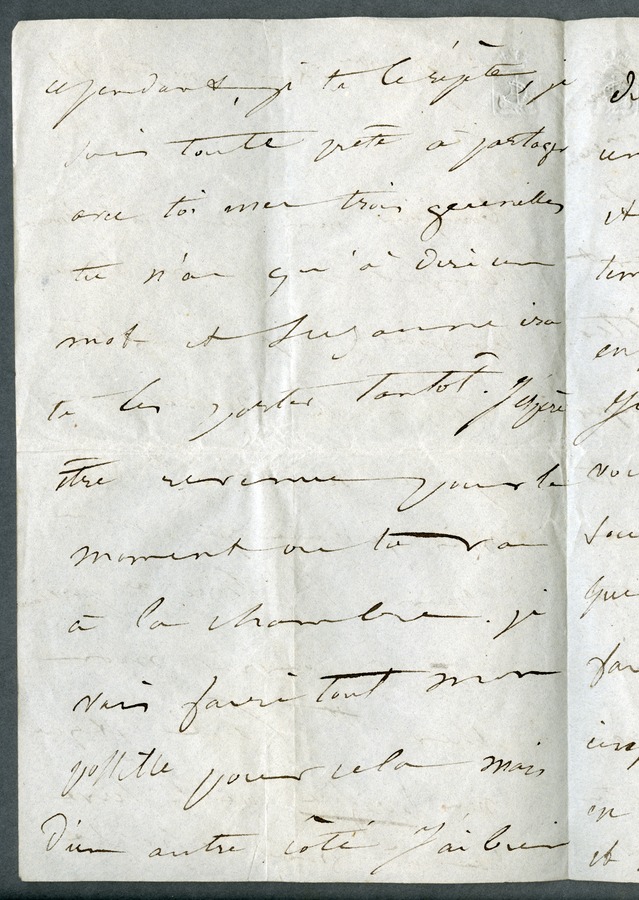 cependant, je te le répète, je
suis toute prête à partager
avec toi mes trois guenilles
tu n'as qu'à dire un
mot et Suzanne ira
te les porter tantôt. J'espère
être revenue pour le
moment où tu vas
à la chambre. je
vais faire tout mon
possible pour cela mais
D'un autre côté J'ai bien